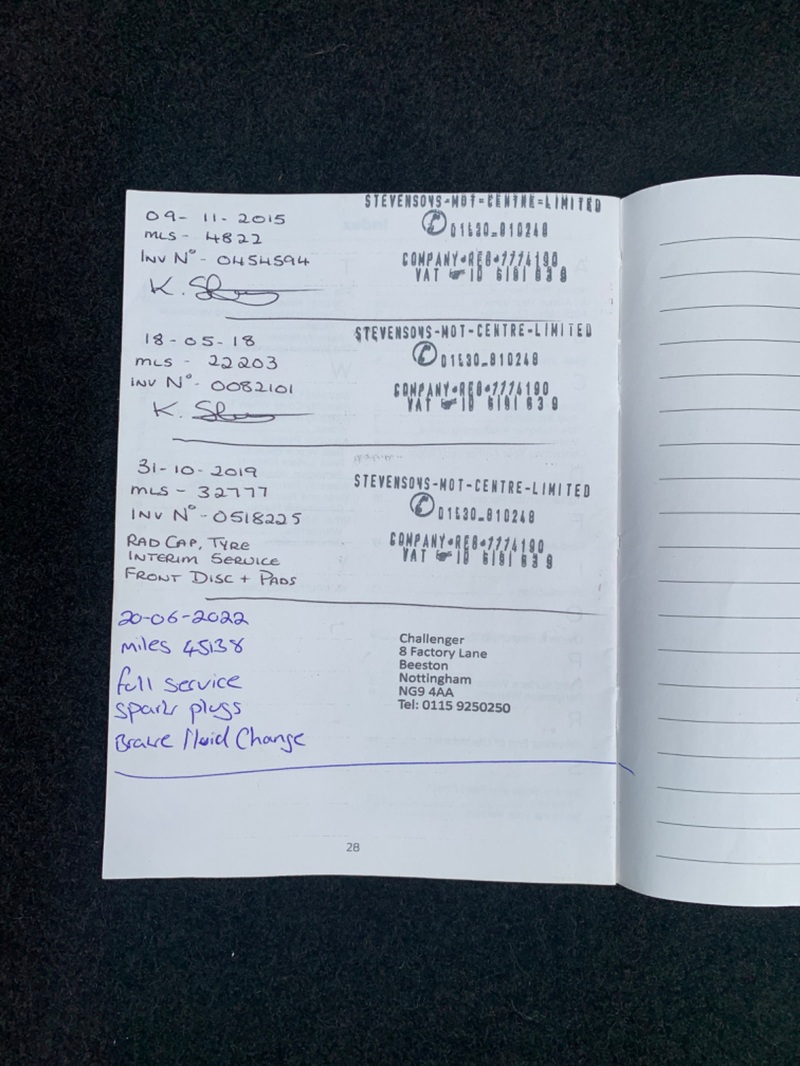 09-11-2015
MLS - 4822
INV Nº - 0454594
STEVENSONS-MOT=CENTRE=LIMITED
01530-810248
COMPANY•REG•7774190
VAT ID 6181 639
K.
18-05-18
MLS - 22203
INV Nº - 0082101
STEVENSONS-MOT-CENTRE-LIMITED
01530-810248
COMPANY•REG•7774190
VAT ID 6181 639
K.
31-10-2019
MLS - 32777
INV Nº - 0518225
STEVENSONS-MOT-CENTRE-LIMITED
01530-810248
COMPANY•REG•7774190
VAT ID 6181 639
RAD CAP, TYRE
INTERIM SERVICE
FRONT DISC + PADS
20-06-2022
miles 45138
full service
spark plugs
Brake fluid Change
Challenger
8 Factory Lane
Beeston
Nottingham
NG9 4AA
Tel: 0115 9250250
28